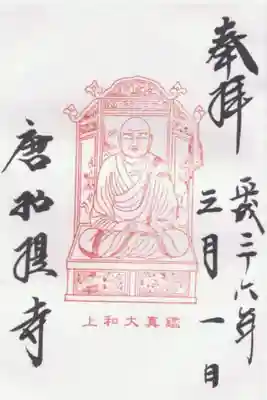 奉拝
平成二十六年
三月一日
鑑真大和上
唐招提寺